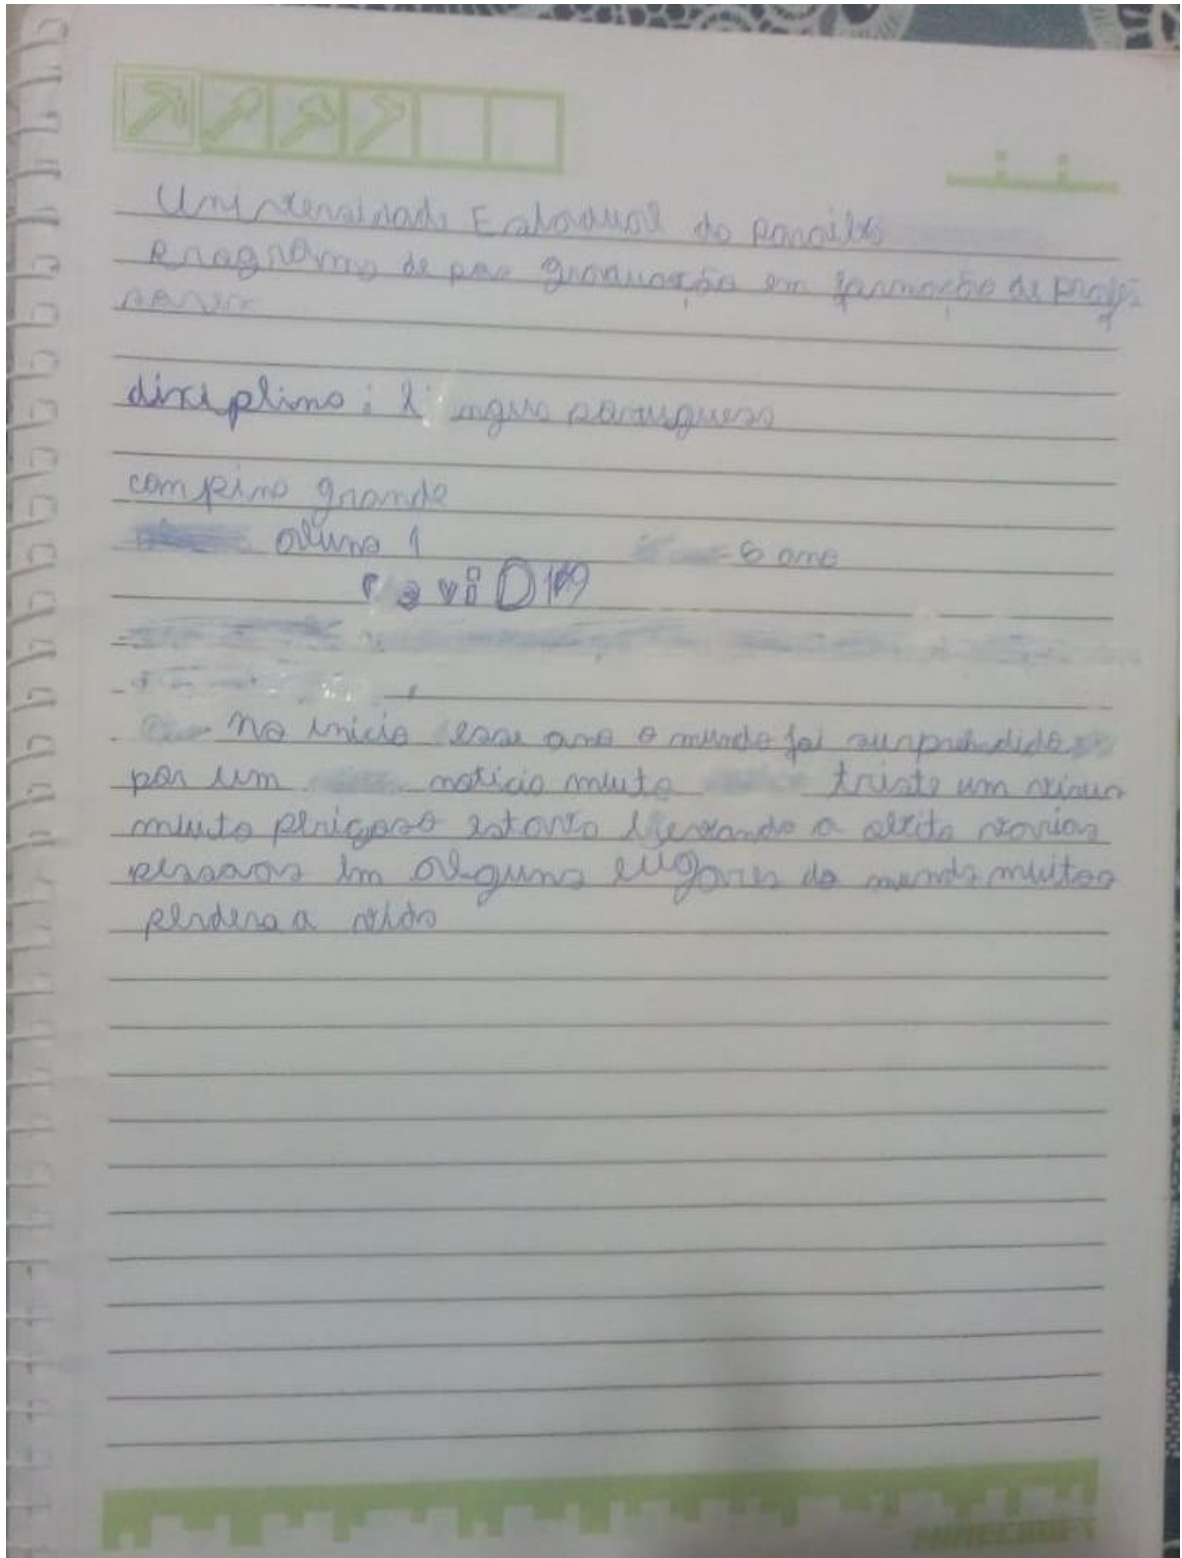 Universidade Estadual da Paraiba
Programa de pos graduação em formação de profe
ssores
disciplina: lingua portuguesa
campina grande
aluno 1 6 ano
coviD 19
No inicio esse ano o mundo foi surprehdido
por um noticia muito triste um virus
muito perigoso estava levando a obito varias
pessoas em alguns lugares do mundo muitos
perdera a vida
MINECRAFT